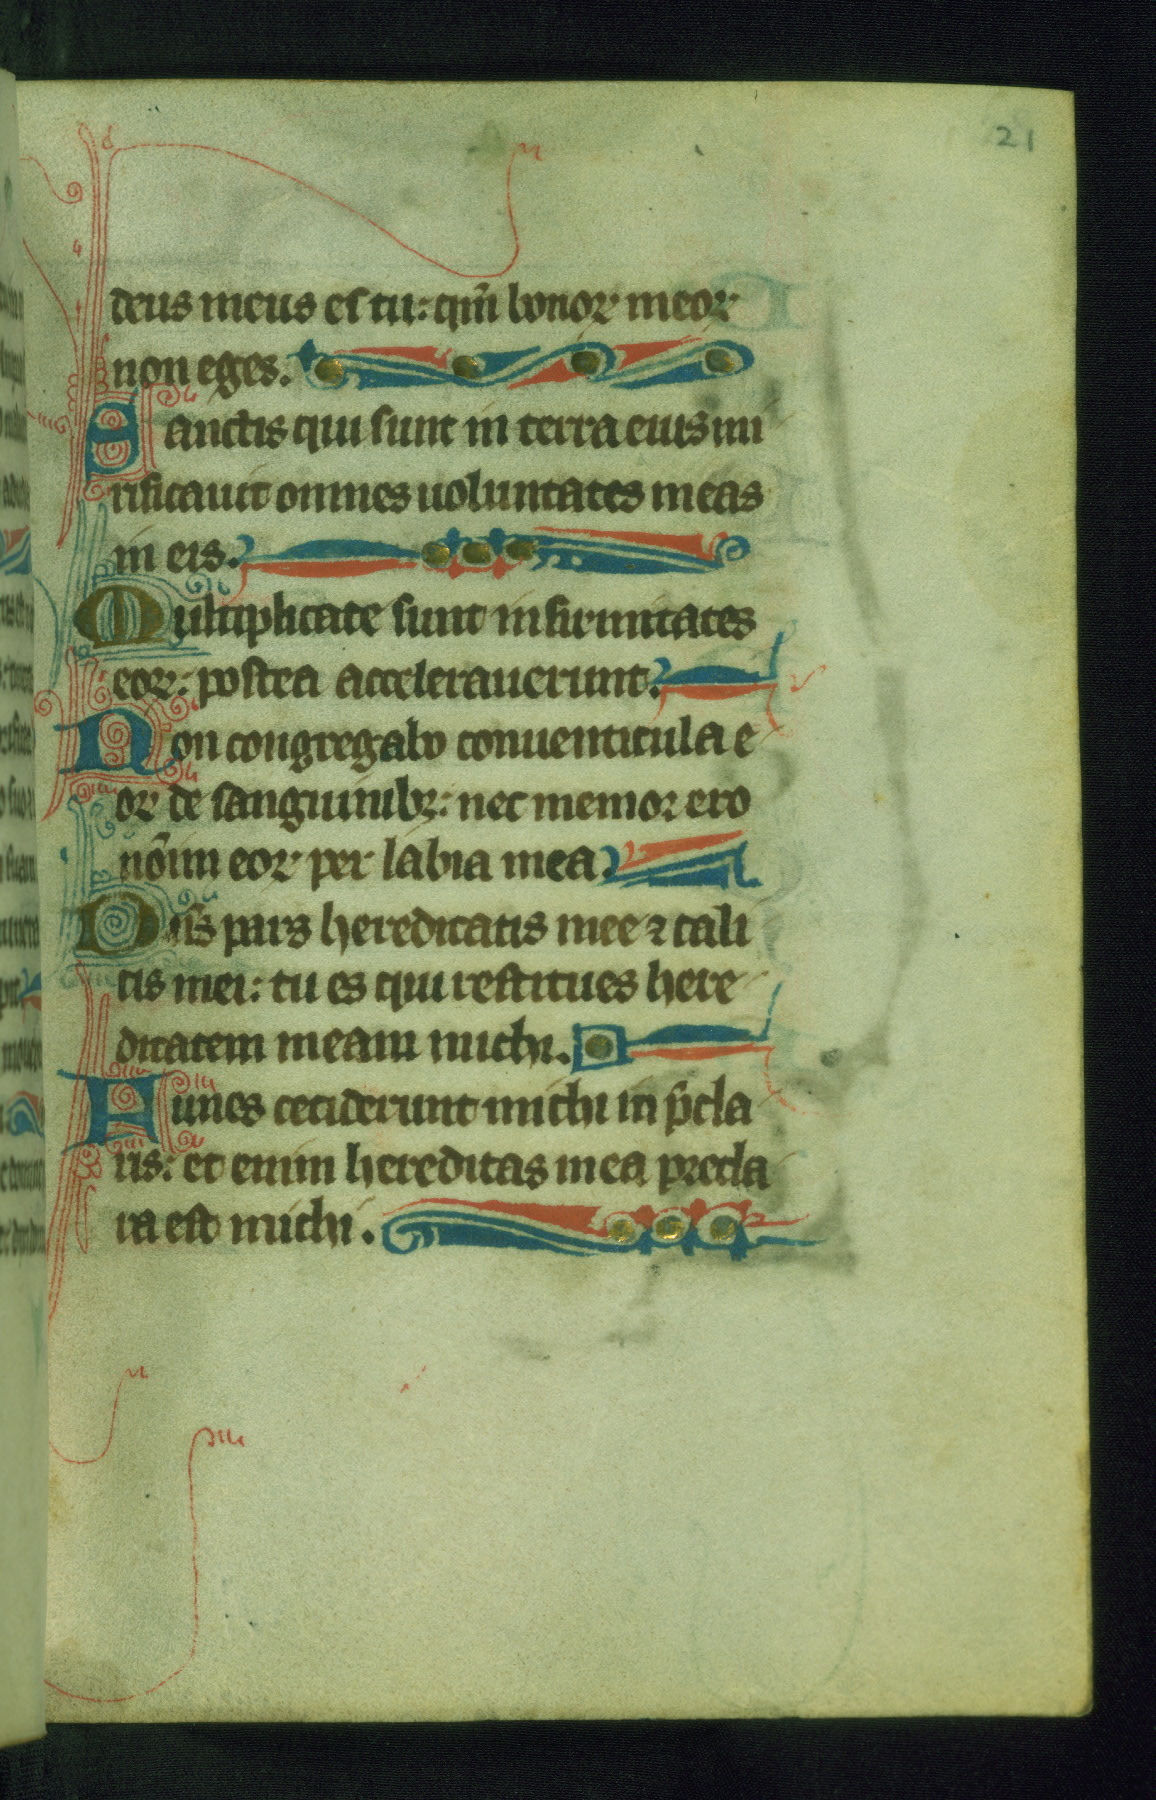 21
deus meus es tu: qm̄ bonoꝝ meoꝝ
non eges.
Sanctis qui sunt in terra eius mi
rificauit omnes uoluntates meas
in eis.
Multiplicate sunt infirmitates
eoꝝ: postea accelerauerunt.
Non congregabo conuenticula e
oꝝ de sanguinibꝫ: nec memor ero
nōim eoꝝ per labia mea.
Dn̄s pars hereditatis mee ⁊ cali
cis mei: tu es qui restitues here
ditatem meam michi.
Funes ceciderunt michi in p̄cla
ris: et enim hereditas mea precla
ra est michi.